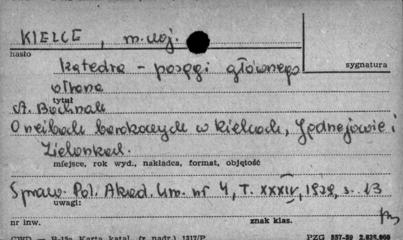 KIELCE, m. woj.
hasło
Katedra - posągi głównego
sygnatura
ołtarza
tytuł
A. Bochnak
O rzeźbach barokowych w Kielcach, Jędrzejowie i
Zielonkach.
miejsce, rok wyd., nakładca, format, objętość
Spraw. Pol. Akad. Um. nr 4, T. XXXIV, 1929, s. 13
uwagi:
nr inw.
znak klas.
GWD — H-15a Karta katal. (z nadr.) 1317/P
PZG